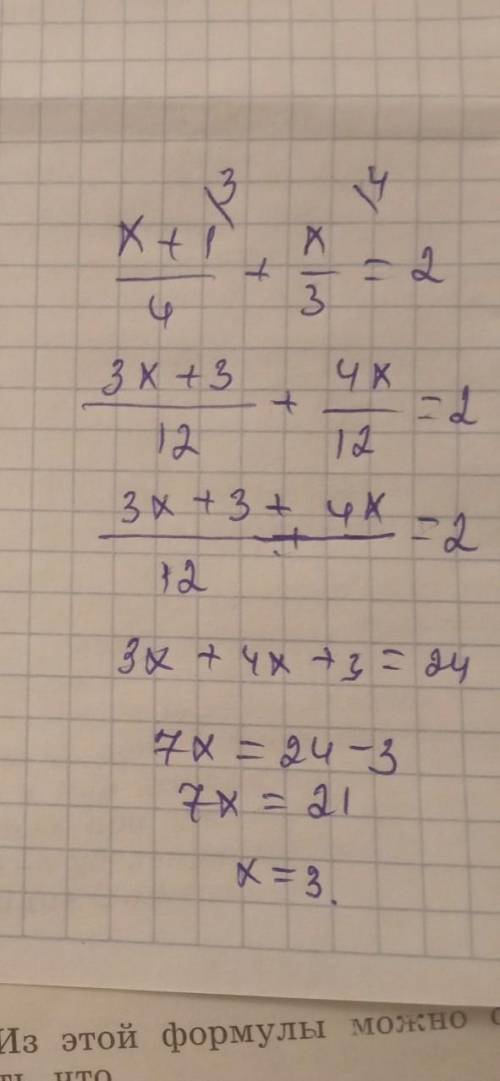 3 4
x + 1 / 4 + x / 3 = 2
3x + 3 / 12 + 4x / 12 = 2
3x + 3 + 4x / 12 = 2
3x + 4x + 3 = 24
7x = 24 - 3
7x = 21
x = 3.
Из этой формулы можно
что